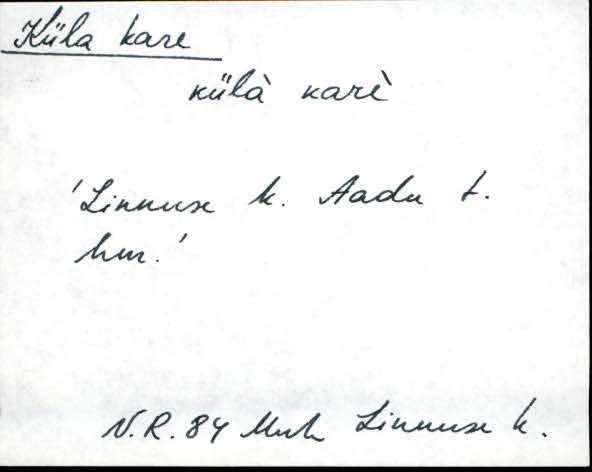 Küla kare
külà karè
'Linnuse k. Aadu t.
hm.'
N.R. 84 Muh Linnuse k.